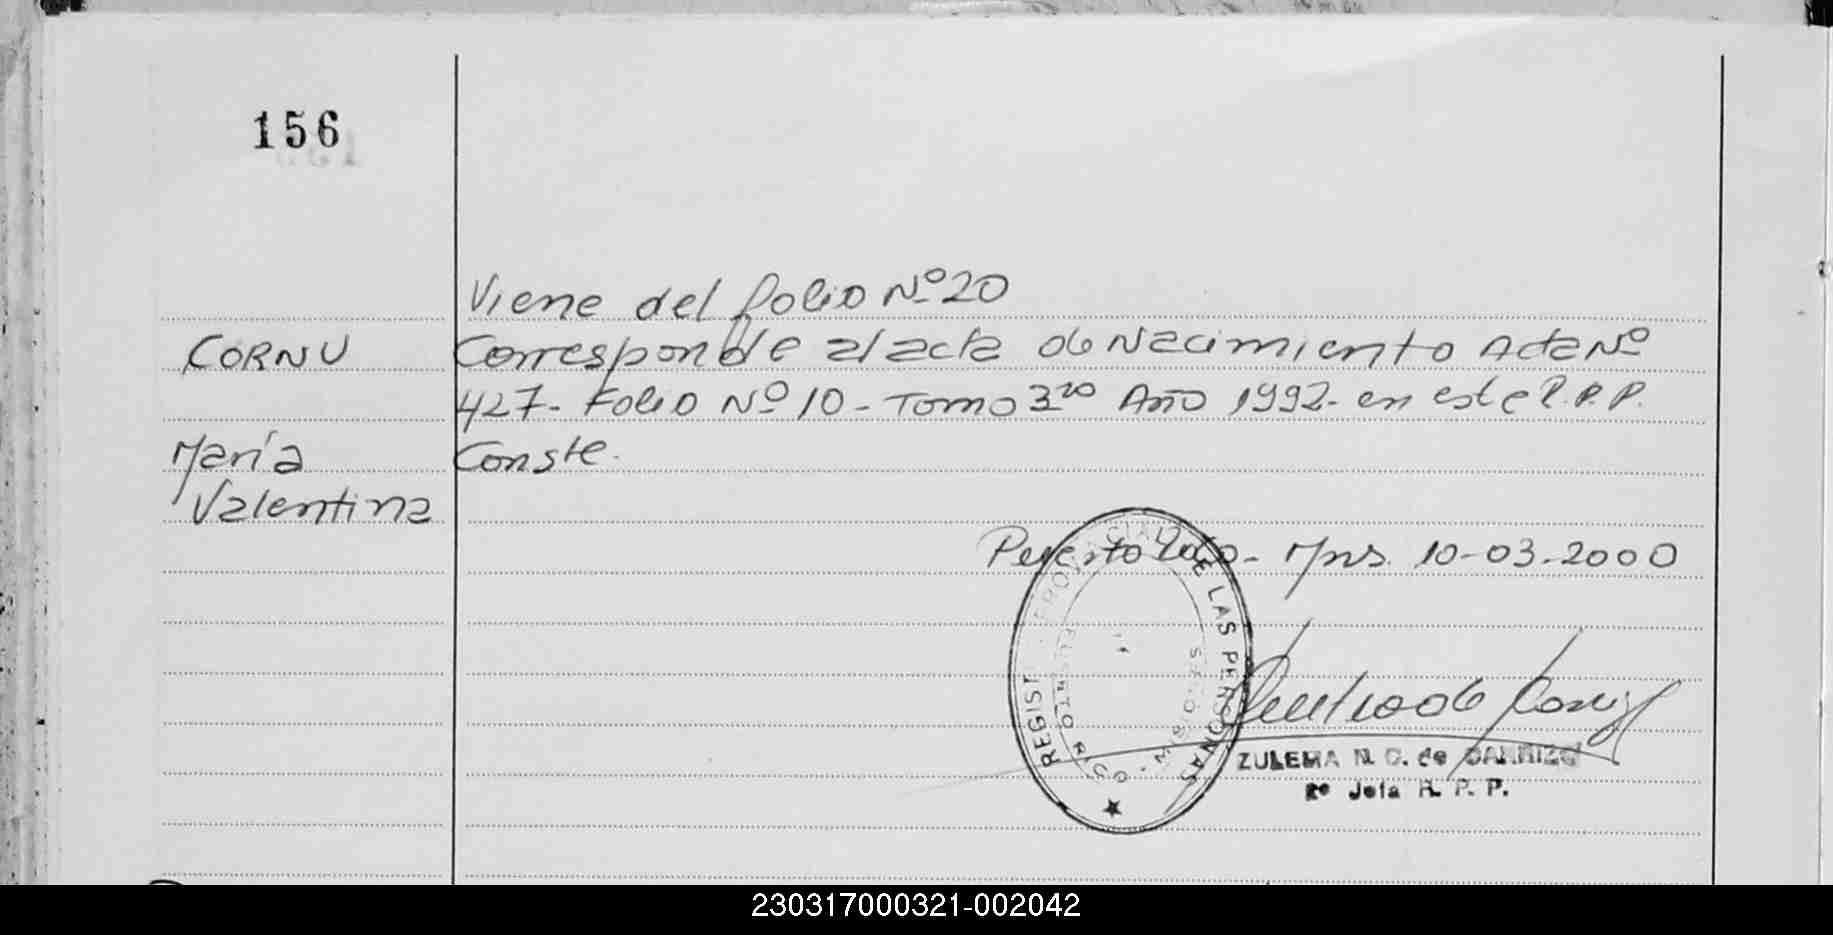 156
Viene del folio Nº 20
CORNU
Corresponde al acta de Nacimiento Acta Nº
427- Folio Nº 10 - Tomo 3ro Año 1992- en este R.P.P.
María
Conste.
Valentina
Puerto Rico - Mns. 10-03-2000
DE LAS PERSONAS
ZULEMA N. C. de CARRIZO
2º Jefa R. P. P.
230317000321-002042